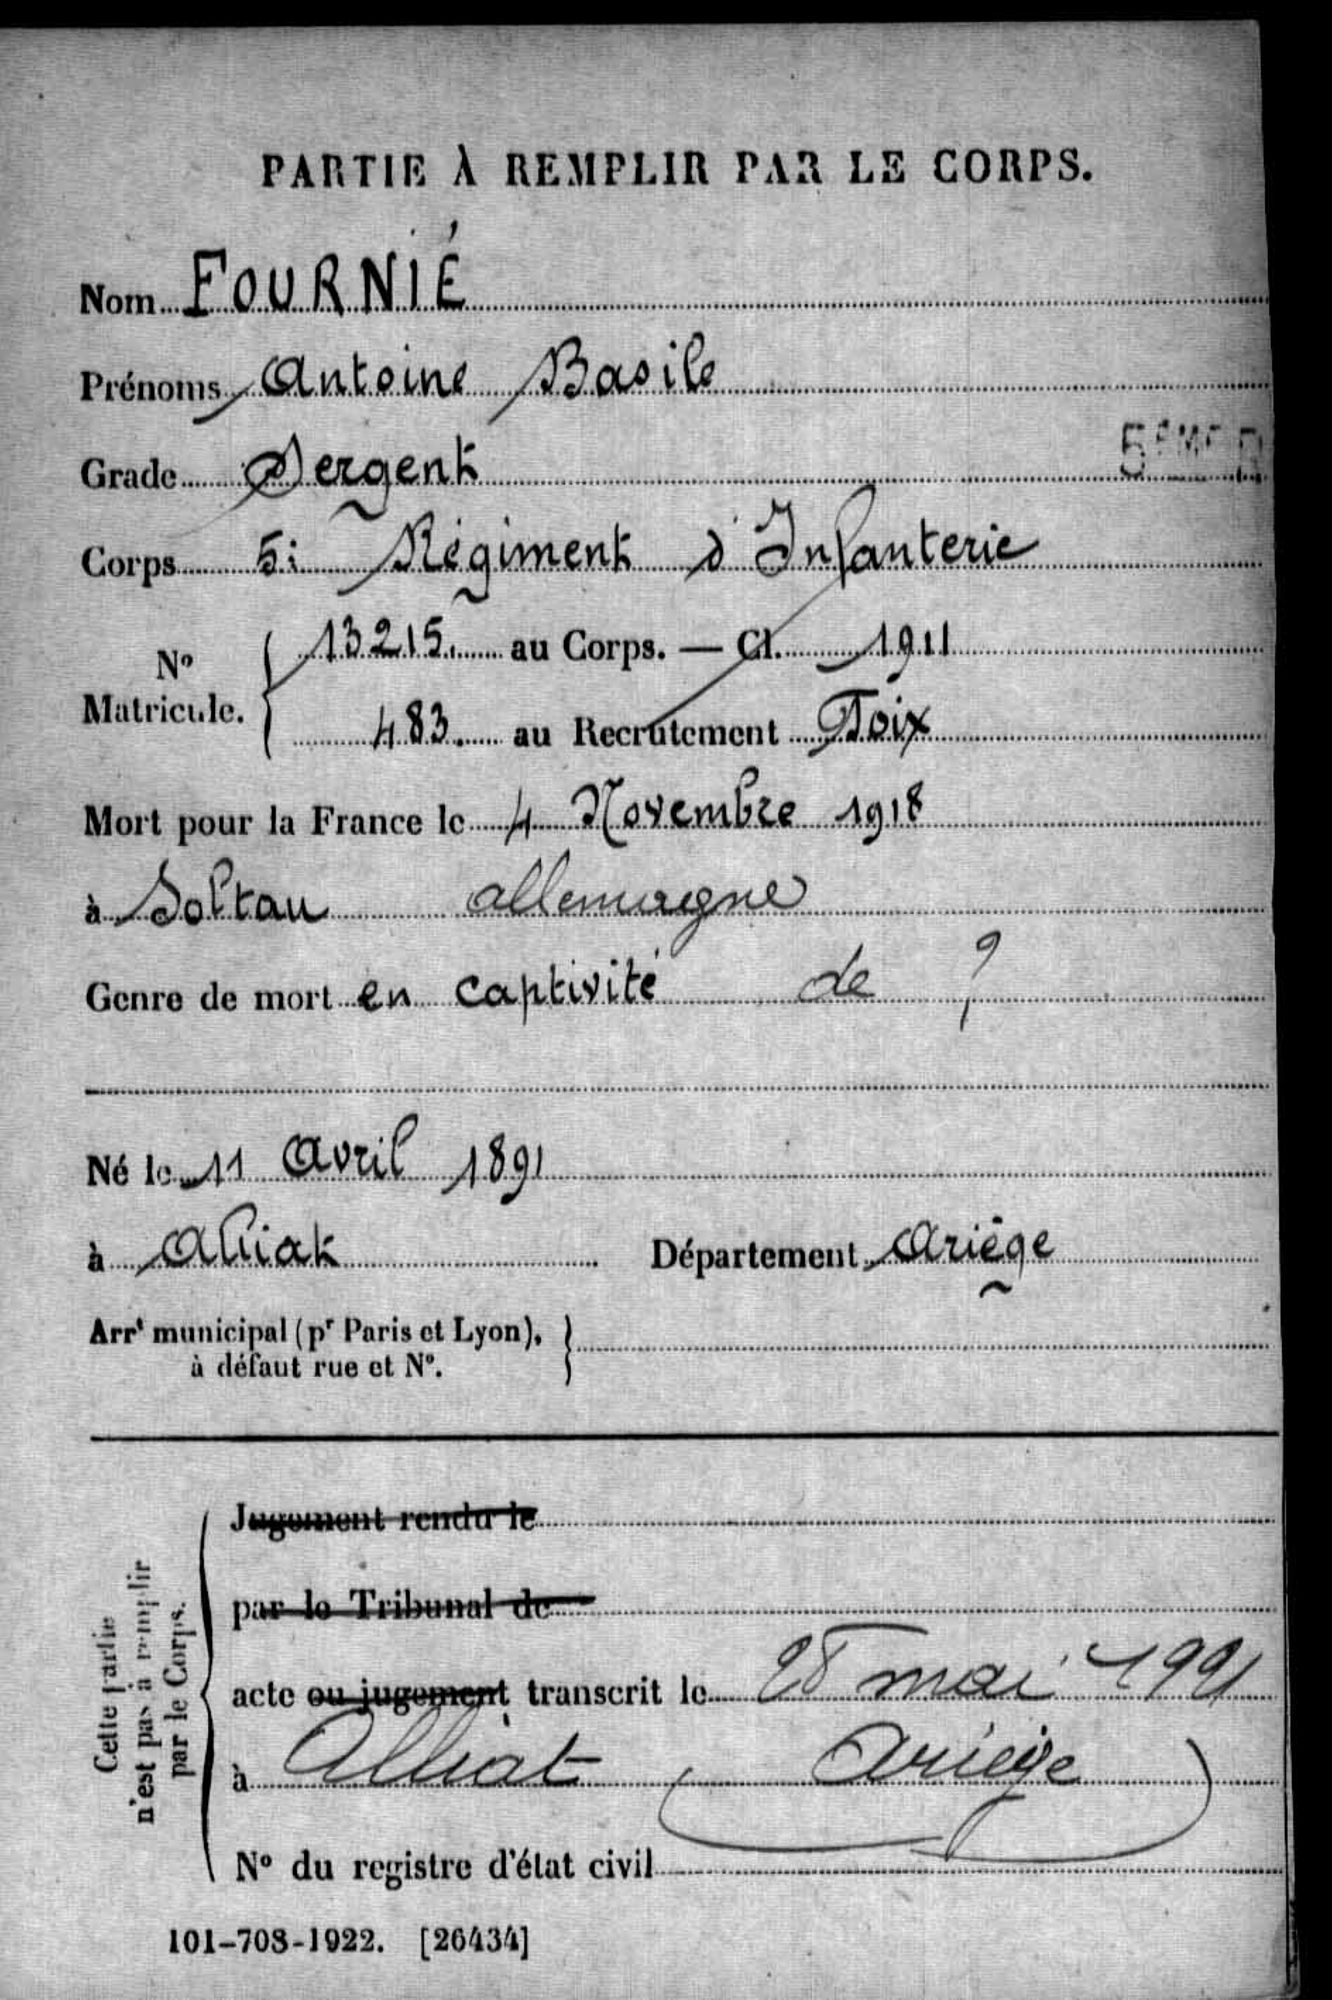 PARTIE À REMPLIR PAR LE CORPS.
Nom FOURNIÉ
Prénoms Antoine Basile
Grade Sergent
Corps 5e Régiment d'Infanterie
No Matricule. { 13215. au Corps. — Cl. 1911
483. au Recrutement Foix
Mort pour la France le 4 Novembre 1918
à Soltau allemagne
Genre de mort en captivité de ?
Né le 11 Avril 1891
à Alliat Département Ariège
Arrt municipal (pr Paris et Lyon), }
à défaut rue et No.
Cette partie
n'est pas à remplir
par le Corps.
Jugement rendu le
par le Tribunal de
acte ou jugement transcrit le 28 mai 1921
à Alliat (Ariège)
No du registre d'état civil
101-708-1922. [26434]